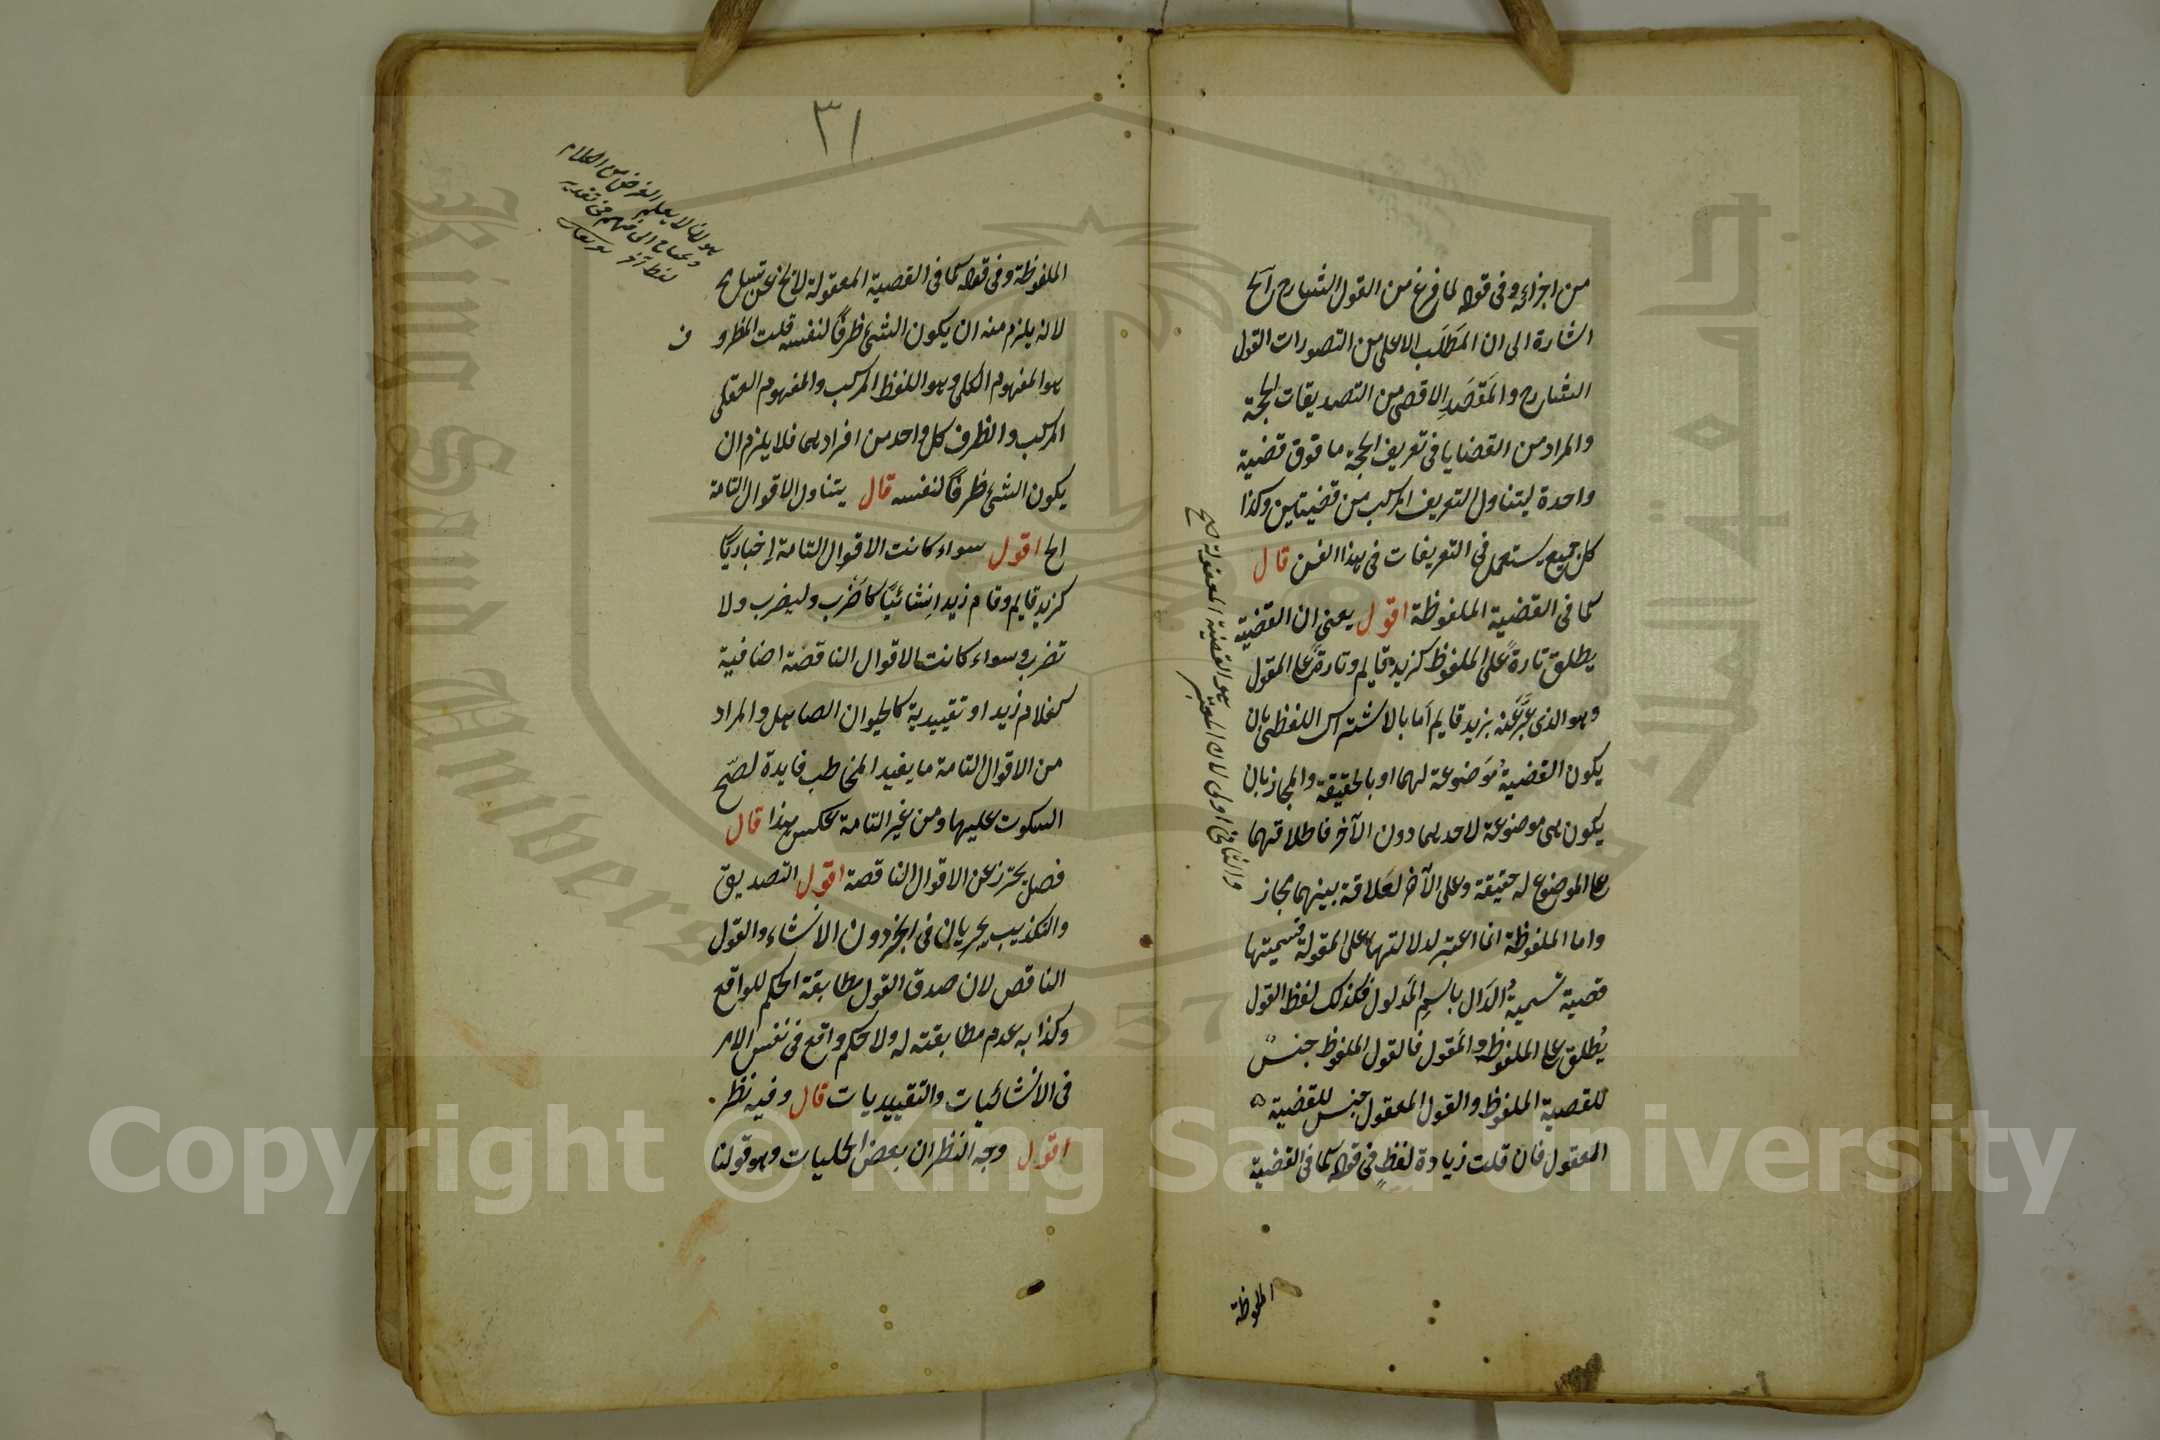 من اجزاءه وفى قوله لما فرغ من القول الشارح آلخ
اشارة الى ان المَطلَب الاعلى من التصورات القول
الشارح والمَقصَدِ الاقصى من التصديقات الحجة
والمراد من القضايا فى تعريف الحجة ما فوق قضية
واحدة ليتناول التعريف المركب من قضيتين وكذا
كل جمع يستعمل فى التعريفات فى هذا الفن قال
كما فى القضية الملفوظة اقول يعنى ان القضية
يطلق تارةً على الملفوظ كزيد قايم وتارةً على المقول
وهو الذى عبّر عنه بزيد قايم اما بالاشتراك اللفظى بان
يكون القضية موضوعة لهما او بالحقيقة والمجاز بان
يكون هى موضوعة لاحديهما دون الآخر فاطلاقها
على الموضوع له حقيقة وعلى الآخر لعلاقة بينهما مجاز
والثانى اولى لان المعتبر هو القضية المعقولة صح
واما الملفوظة انما اعتبر لدلالتها على المقولة فتسميتها
قضية تسمية الدال باسمِ المَدلول فكذلك لفظ القول
يُطلق على الملفوظ والمقول فالقول الملفوظ جنسٌ
للقضية الملفوظ والقول المعقول جنس للقضية
المعقول فان قلت زيادة لفظ فى قوله كما فى القضية
الملفوظة
٣١
هو ان لا يعلم الغرض من الكلام
الملفوظة وفى قوله كما فى القضية المعقولة لا يخ عن تسامح
لانه يلزم منه ان يكون الشئ ظرفًا لنفسه قلت المظروف
هو المفهوم الكلى وهو اللفظ المركب والمفهوم العقلى
المركب والظرف كل واحد من افرادهما فلا يلزم ان
يكون الشئ ظرفًا لنفسه قال يتناول الاقوال التامة
الخ اقول سواء كانت الاقوال التامة اِخباريًّا
كزيد قايم وقام زيد اِنشائيًّا كاضْرب وليضرب ولا
تضرب وسواء كانت الاقوال الناقصة اضافية
كغلام زيد او تقييدية كالحيوان الصاهل والمراد
من الاقوال التامة ما يفيد المخاطب فايدة لصحّ
السكوت عليها ومن غير التامة عكس هذا قال
فصل يحترز عن الاقوال الناقصة اقول التصديق
والتكذيب يجريان فى الخبر دون الانشاء والقول
الناقص لان صدق القول مطابقة الحكم للواقع
وكذابه عدم مطابقته له ولا حكم واقع فى نفس الامر
فى الانشائيات والتقييديات قال وفيه نظر
اقول وجه النظر ان بعض الحمليات وهو قولنا
Copyright © King Saud University